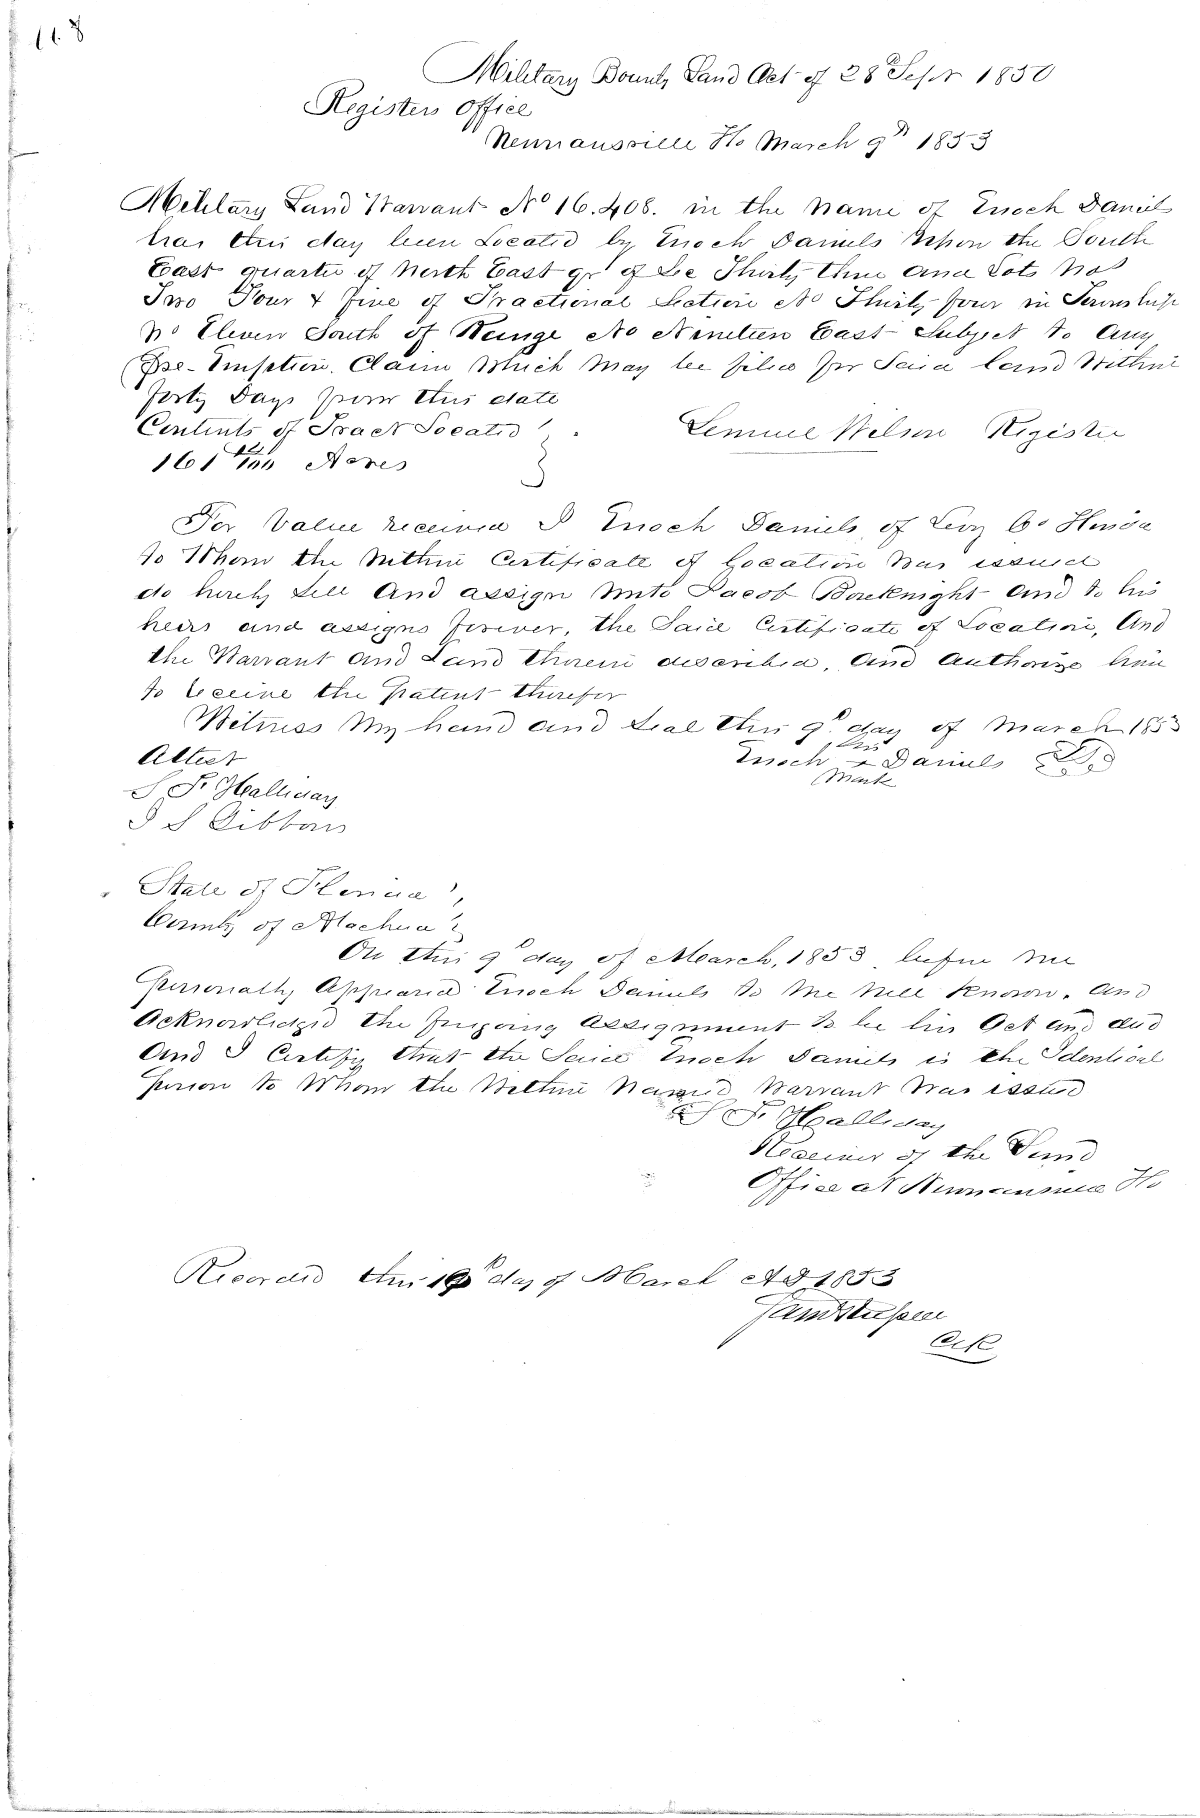 118
Military Bounty Land Act of 28th Sept 1850
Registers Office
Newnansville Fla March 9th 1853
Military Land Warrant No 16.408. in the name of Enoch Daniels
has this day been Located by Enoch Daniels upon the South
East quarter of North East qr of Sec Thirty three and Lots Nos
Two Four & five of Fractional Section No Thirty four in Township
No Eleven South of Range No Nineteen East Subject to any
Pre-Emption Claim which may be filed for Said land within
forty Days from this date
Contents of Tract Located
161 /100 Acres
Lemuel Wilson Register
For Value received I Enoch Daniels of Levy Co Florida
to Whom the within Certificate of Location was issued
do hereby sell and assign unto Jacob Bouknight and to his
heirs and assigns forever, the Said Certificate of Location, and
the Warrant and Land therein described, and authorize him
to receive the Patent therefor
Witness my hand and seal this 9th day of March 1853
his
Attest Enoch + Daniels
mark
S F. Halliday
S Gibbons
State of Florida
County of Alachua
On this 9th day of March, 1853 before me
Personally Appeared Enoch Daniels to me well known. and
Acknowledged the foregoing assignment to be his Act and deed
And I Certify that the Said Enoch Daniels is the Identical
person to Whom the Within Named Warrant was issued
S F. Halliday
Receiver of the Land
Office at Newnansville Fla
Recorded this day of March AD 1853
Clk